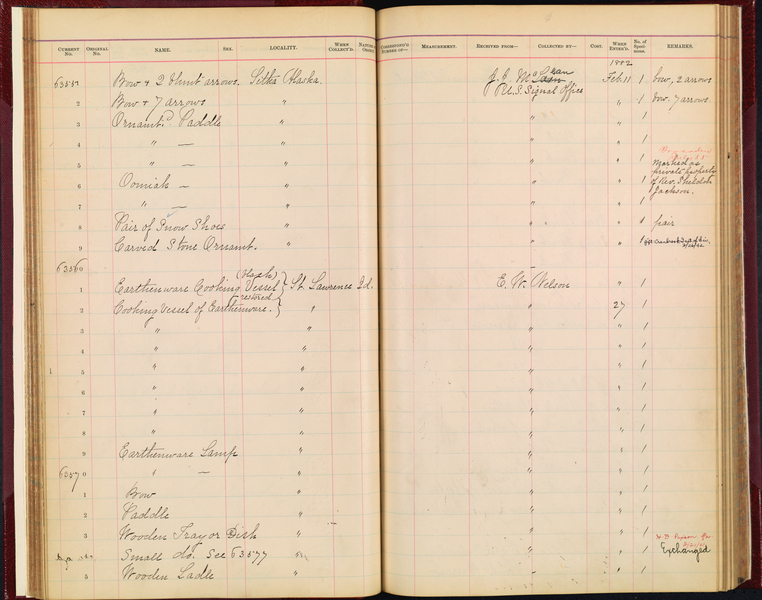 CURRENT No. ORIGINAL No. NAME. SEX. LOCALITY. WHEN COLLECT'D. CORRESPOND'G NUMBER OF— MEASUREMENT. RECEIVED FROM— COLLECTED BY— COST. WHEN ENTER'D. No. of Speci- mens. REMARKS.
1882
63551 Bow & 2 blunt arrows. Sitka Alaska. J. J. McLean Feb. 11 1 bow, 2 arrows
U.S. Signal Office
2 Bow & 7 arrows " " 1 bow. 7 arrows
3 Ornamtd. Paddle " " " 1
4 " — " " " 1
5 " — " " " 1 Marked as
private property
6 Oomiak — " " " 1 of Rev. Sheldon
Jackson.
7 " — " " " 1
8 Pair of Snow Shoes " " " 1 pair
9 Carved Stone Ornamt. " " " 1
63560
1 Earthenware Cooking Vessel St. Lawrence Id. E. W. Nelson " 1
restored
2 Cooking Vessel of Earthenware. " " 27 1
3 " " " " 1
4 " " " " 1
5 " " " " 1
6 " " " " 1
7 " " " " 1
8 " " " " 1
9 Earthenware Lamp " " " 1
63570 " — " " " 1
1 Bow " " " 1
2 Paddle " " " 1
3 Wooden Tray or Dish " " " 1
Small do. See 63577 " " " 1 Exchanged
5 Wooden Ladle " " " 1